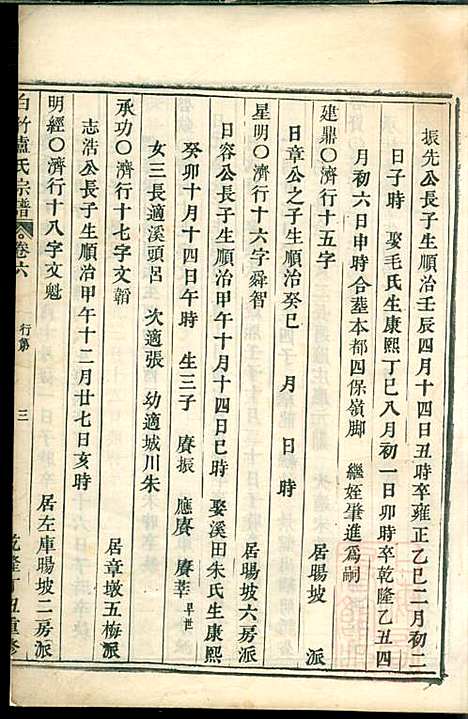 振先公長子生順治壬辰四月十四日丑時卒雍正乙巳二月初二
日子時　娶毛氏生康熙丁巳八月初一日卯時卒乾隆乙丑四
月初六日申時合塟本都四保嶺脚　繼姪肇進爲嗣
建鼎〇濟行十五字　居暘坡　派
日章公之子生順治癸巳　月　日　時
星明〇濟行十六字舜智　居暘坡六房派
日容公長子生順治甲午十月十四日巳時　娶溪田朱氏生康熙
癸卯十月十四日午時　生三子　賡振　應賡　賡莘早世
女三長適溪頭呂　次適張　幼適城川朱
承功〇濟行十七字文翰　居章墩五梅派
志浩公長子生順治甲午十二月廿七日亥時
明經〇濟行十八字文魁　居左庫暘坡二房派
白竹盧氏宗譜　卷六　行第　三　乾隆丁丑重修